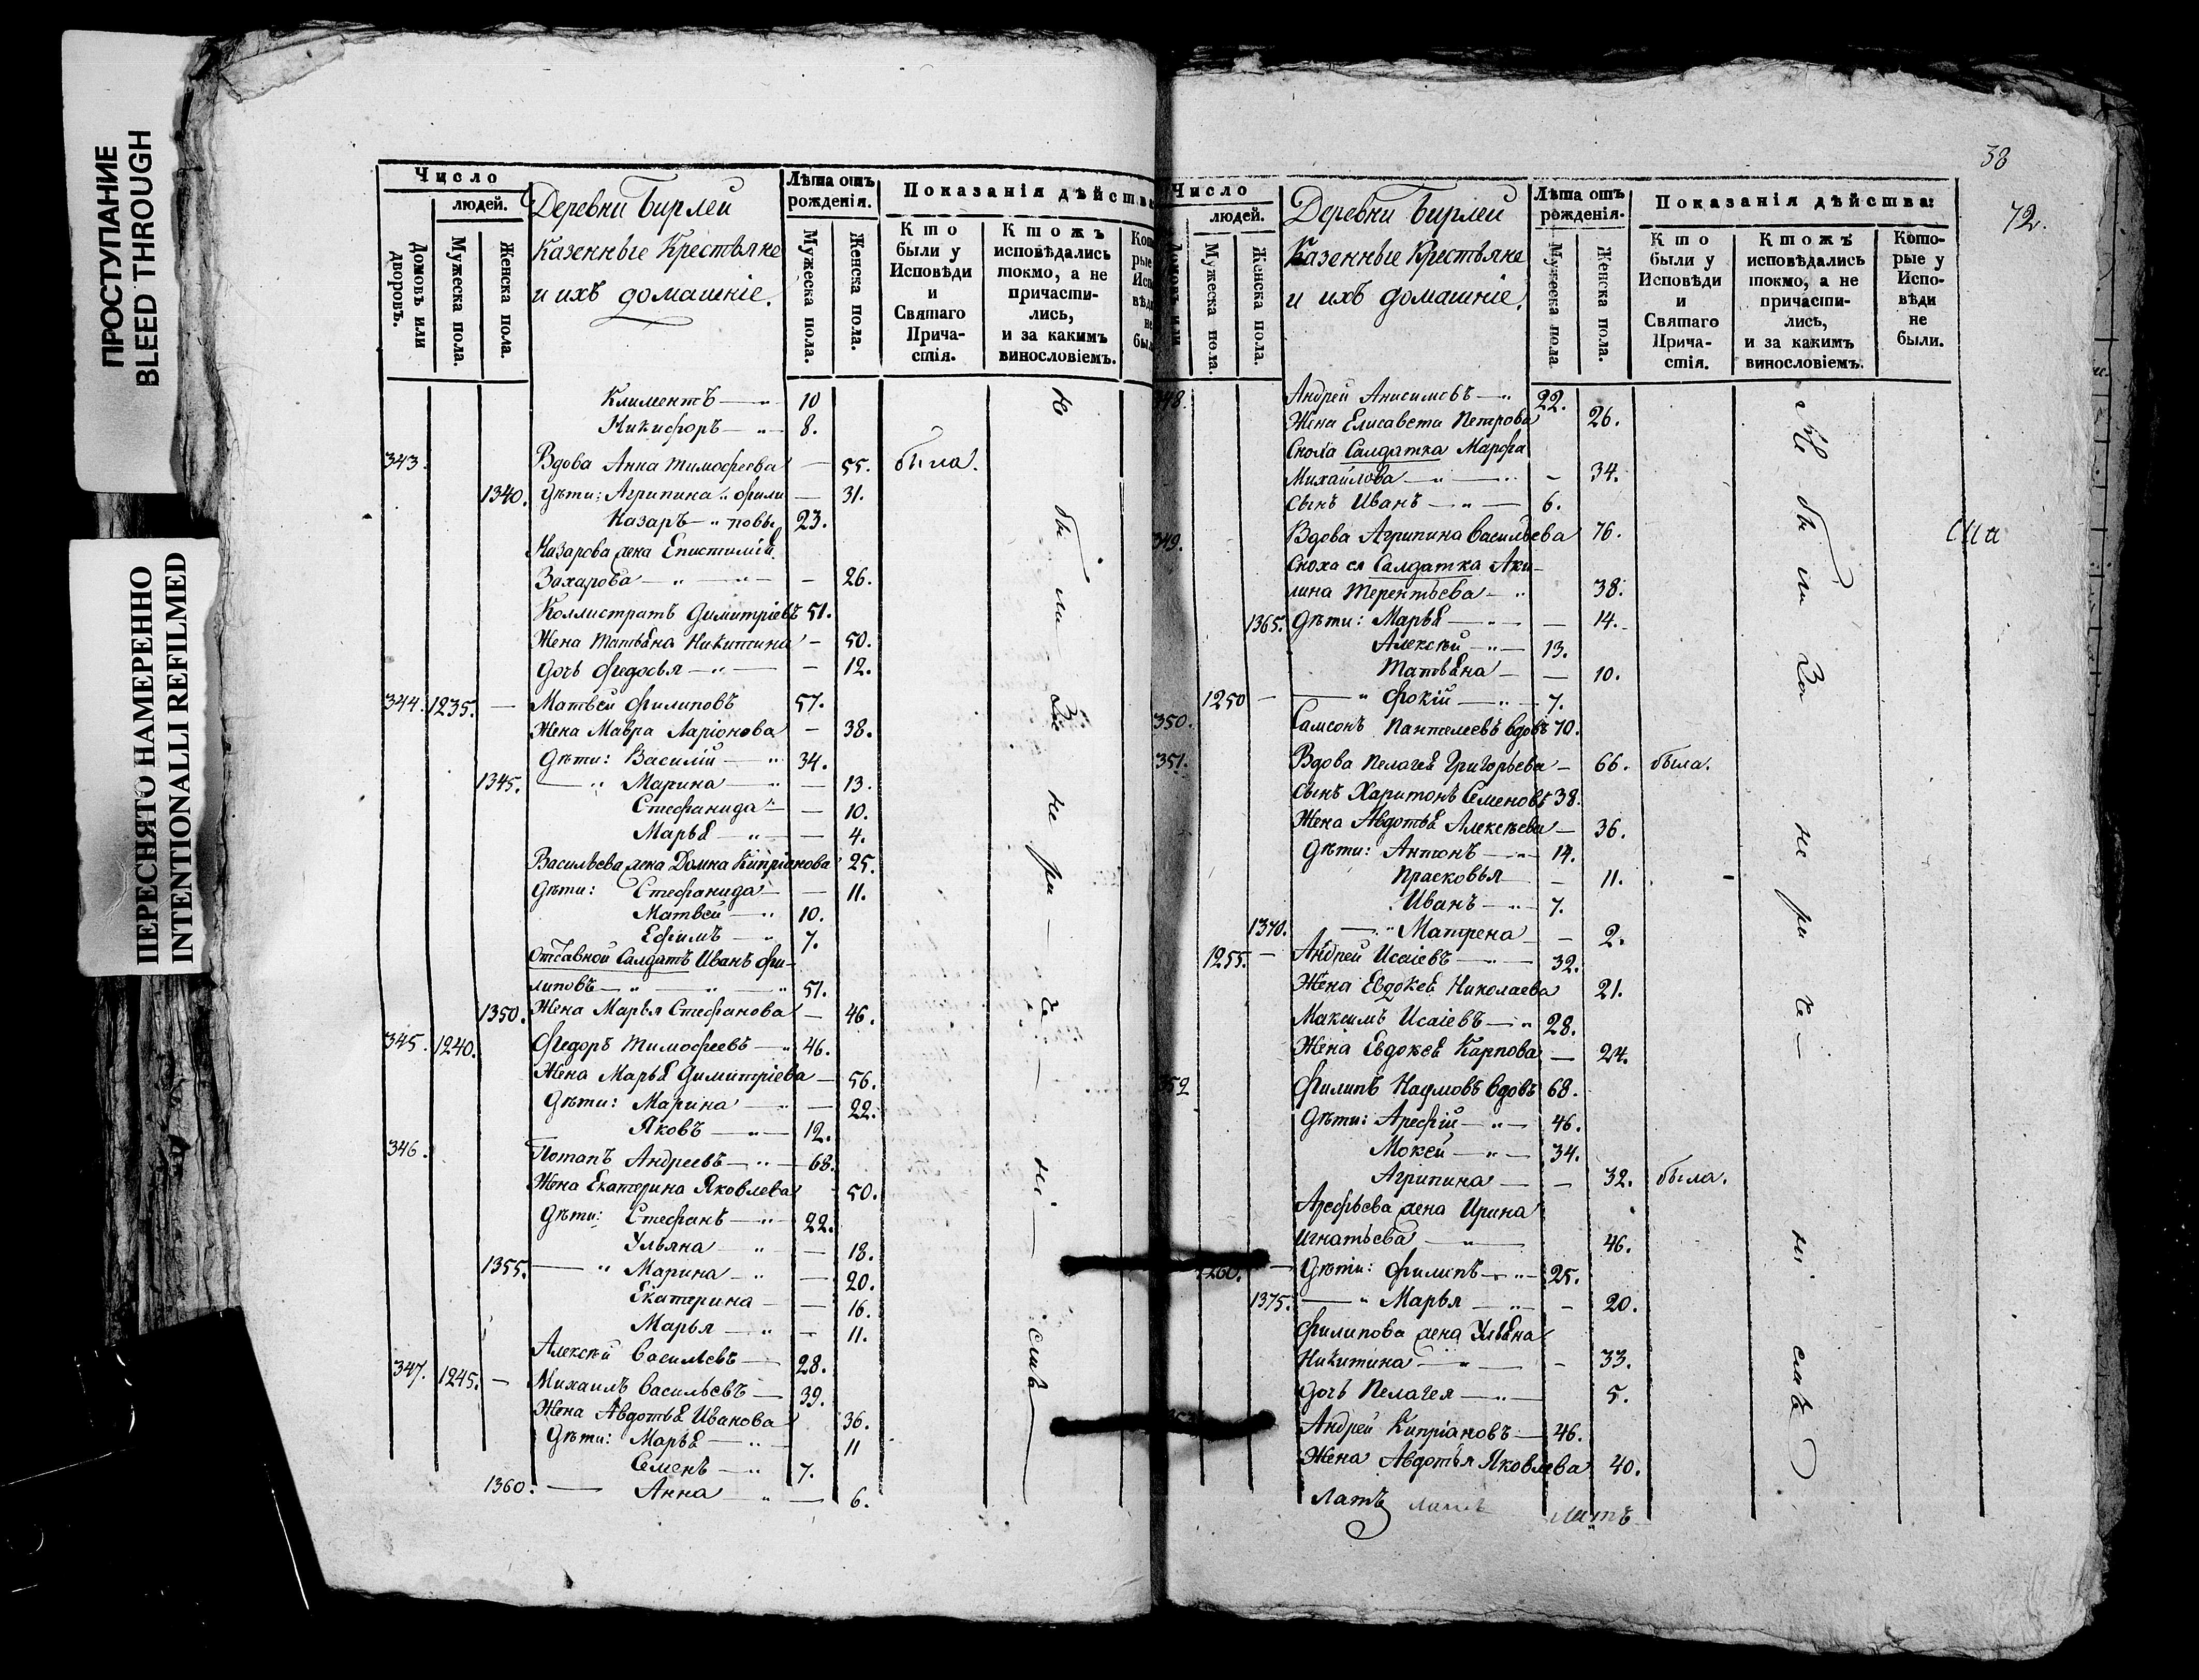 ПРОСТУПАНИЕ
BLEED THROUGH
ПЕРЕСНЯТО НАМЕРЕННО
INTENTIONALLI REFILMED
Число
людей.
Домовъ или дворовъ.
Мужеска пола.
Женска пола.
Деревни Бирлеи
Казенные Крестьяне
и ихъ домашніе.
Лѣта отъ рожденія.
Мужеска пола.
Женска пола.
Показанія дѣйства
Кто были у Исповѣди и Святаго Причастія.
Ктожъ исповѣдались токмо, а не причастились, и за какимъ винословіемъ.
Климентъ 10
Никифоръ 8.
343. Вдова Анна Тимофеева — 55. была.
1340. Дѣти: Агрипина Фили — 31.
Назаръ повы 23.
Назарова жена Епистимія
Захарова — 26.
Коллистратъ Димитріевъ 51.
Жена Татьяна Никитина — 50.
Дочь Федосья — 12.
344. 1235. — Матвей Филиповъ 57.
Жена Мавра Ларіонова — 38.
Дѣти: Василій 34.
1345. Марина — 13.
Стефанида — 10.
Марья — 4.
Васильева жена Домна Кипріанова 25.
Дѣти: Стефанида — 11.
Матвей 10.
Ефимъ 7.
Отставной Салдатъ Иванъ Фи-
липовъ 51.
1350. Жена Марья Стефанова — 46.
345. 1240. Федоръ Тимофеевъ 46.
Жена Марья Димитріева — 56.
Дѣти: Марина — 22.
Яковъ 12.
346. Потапъ Андреевъ 68.
Жена Екатерина Яковлева 50.
Дѣти: Стефанъ 22.
Ульяна — 18.
1355. Марина — 20.
Екатерина — 16.
Марья — 11.
Алексѣй Васильевъ 28.
347. 1245. — Михаилъ Васильевъ 39.
Жена Авдотья Иванова 36.
Дѣти: Марья 11
Семенъ 7.
1360. Анна — 6.
не были за нерачениемъ
38
72.
Число
людей.
Мужеска пола.
Женска пола.
Деревни Бирлеи
Казенные Крестьяне
и ихъ домашніе.
Лѣта отъ рожденія.
Мужеска пола
Женска пола.
Показанія дѣйства:
Кто были у Исповѣди и Святаго Причастія.
Ктожъ исповѣдались токмо, а не причастились, и за какимъ винословіемъ.
Которые у Исповѣди не были.
348. Андрей Анисимовъ 22.
Жена Елисавета Петрова 26.
Сноха Салдатка Марфа
Михайлова — 34.
Сынъ Иванъ 6.
349. Вдова Агрипина Васильева 76.
Сноха ея Салдатка Аки-
лина Терентьева 38.
1365. Дѣти: Марья — 14.
Алексѣй 13.
Татьяна — 10.
1250 — Фокій 7.
350. Самсонъ Пантелеевъ вдовъ 70.
351. Вдова Пелагея Григорьева — 66. была.
Сынъ Харитонъ Семеновъ 38.
Жена Авдотья Алексѣева — 36.
Дѣти: Антонъ 14.
Прасковья — 11.
Иванъ 7.
1370. Матрена — 2.
1255. — Андрей Исаіевъ 32.
Жена Евдокея Николаева 21.
Максимъ Исаіевъ 28.
Жена Евдокея Карпова — 24.
352 Филипъ Наумовъ вдовъ 68.
Дѣти: Арефій 46.
Мокей 34.
Агрипина — 32. была.
Арефьева жена Ирина
Игнатьева 46.
1260. — Дѣти: Филипъ 25.
1375. Марья — 20.
Филипова жена Ульяна
Никитина — 33.
Дочь Пелагея 5.
Андрей Кипріановъ 46.
Жена Авдотья Яковлева 40.
Не были за нерачениемъ